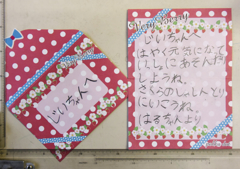 じいちゃんへ
じいちゃんへ
はやく元気になって
いっしょにあそんだり
しようね。
さくらのしゃしんとり
にいこうね。
はるちゃんより